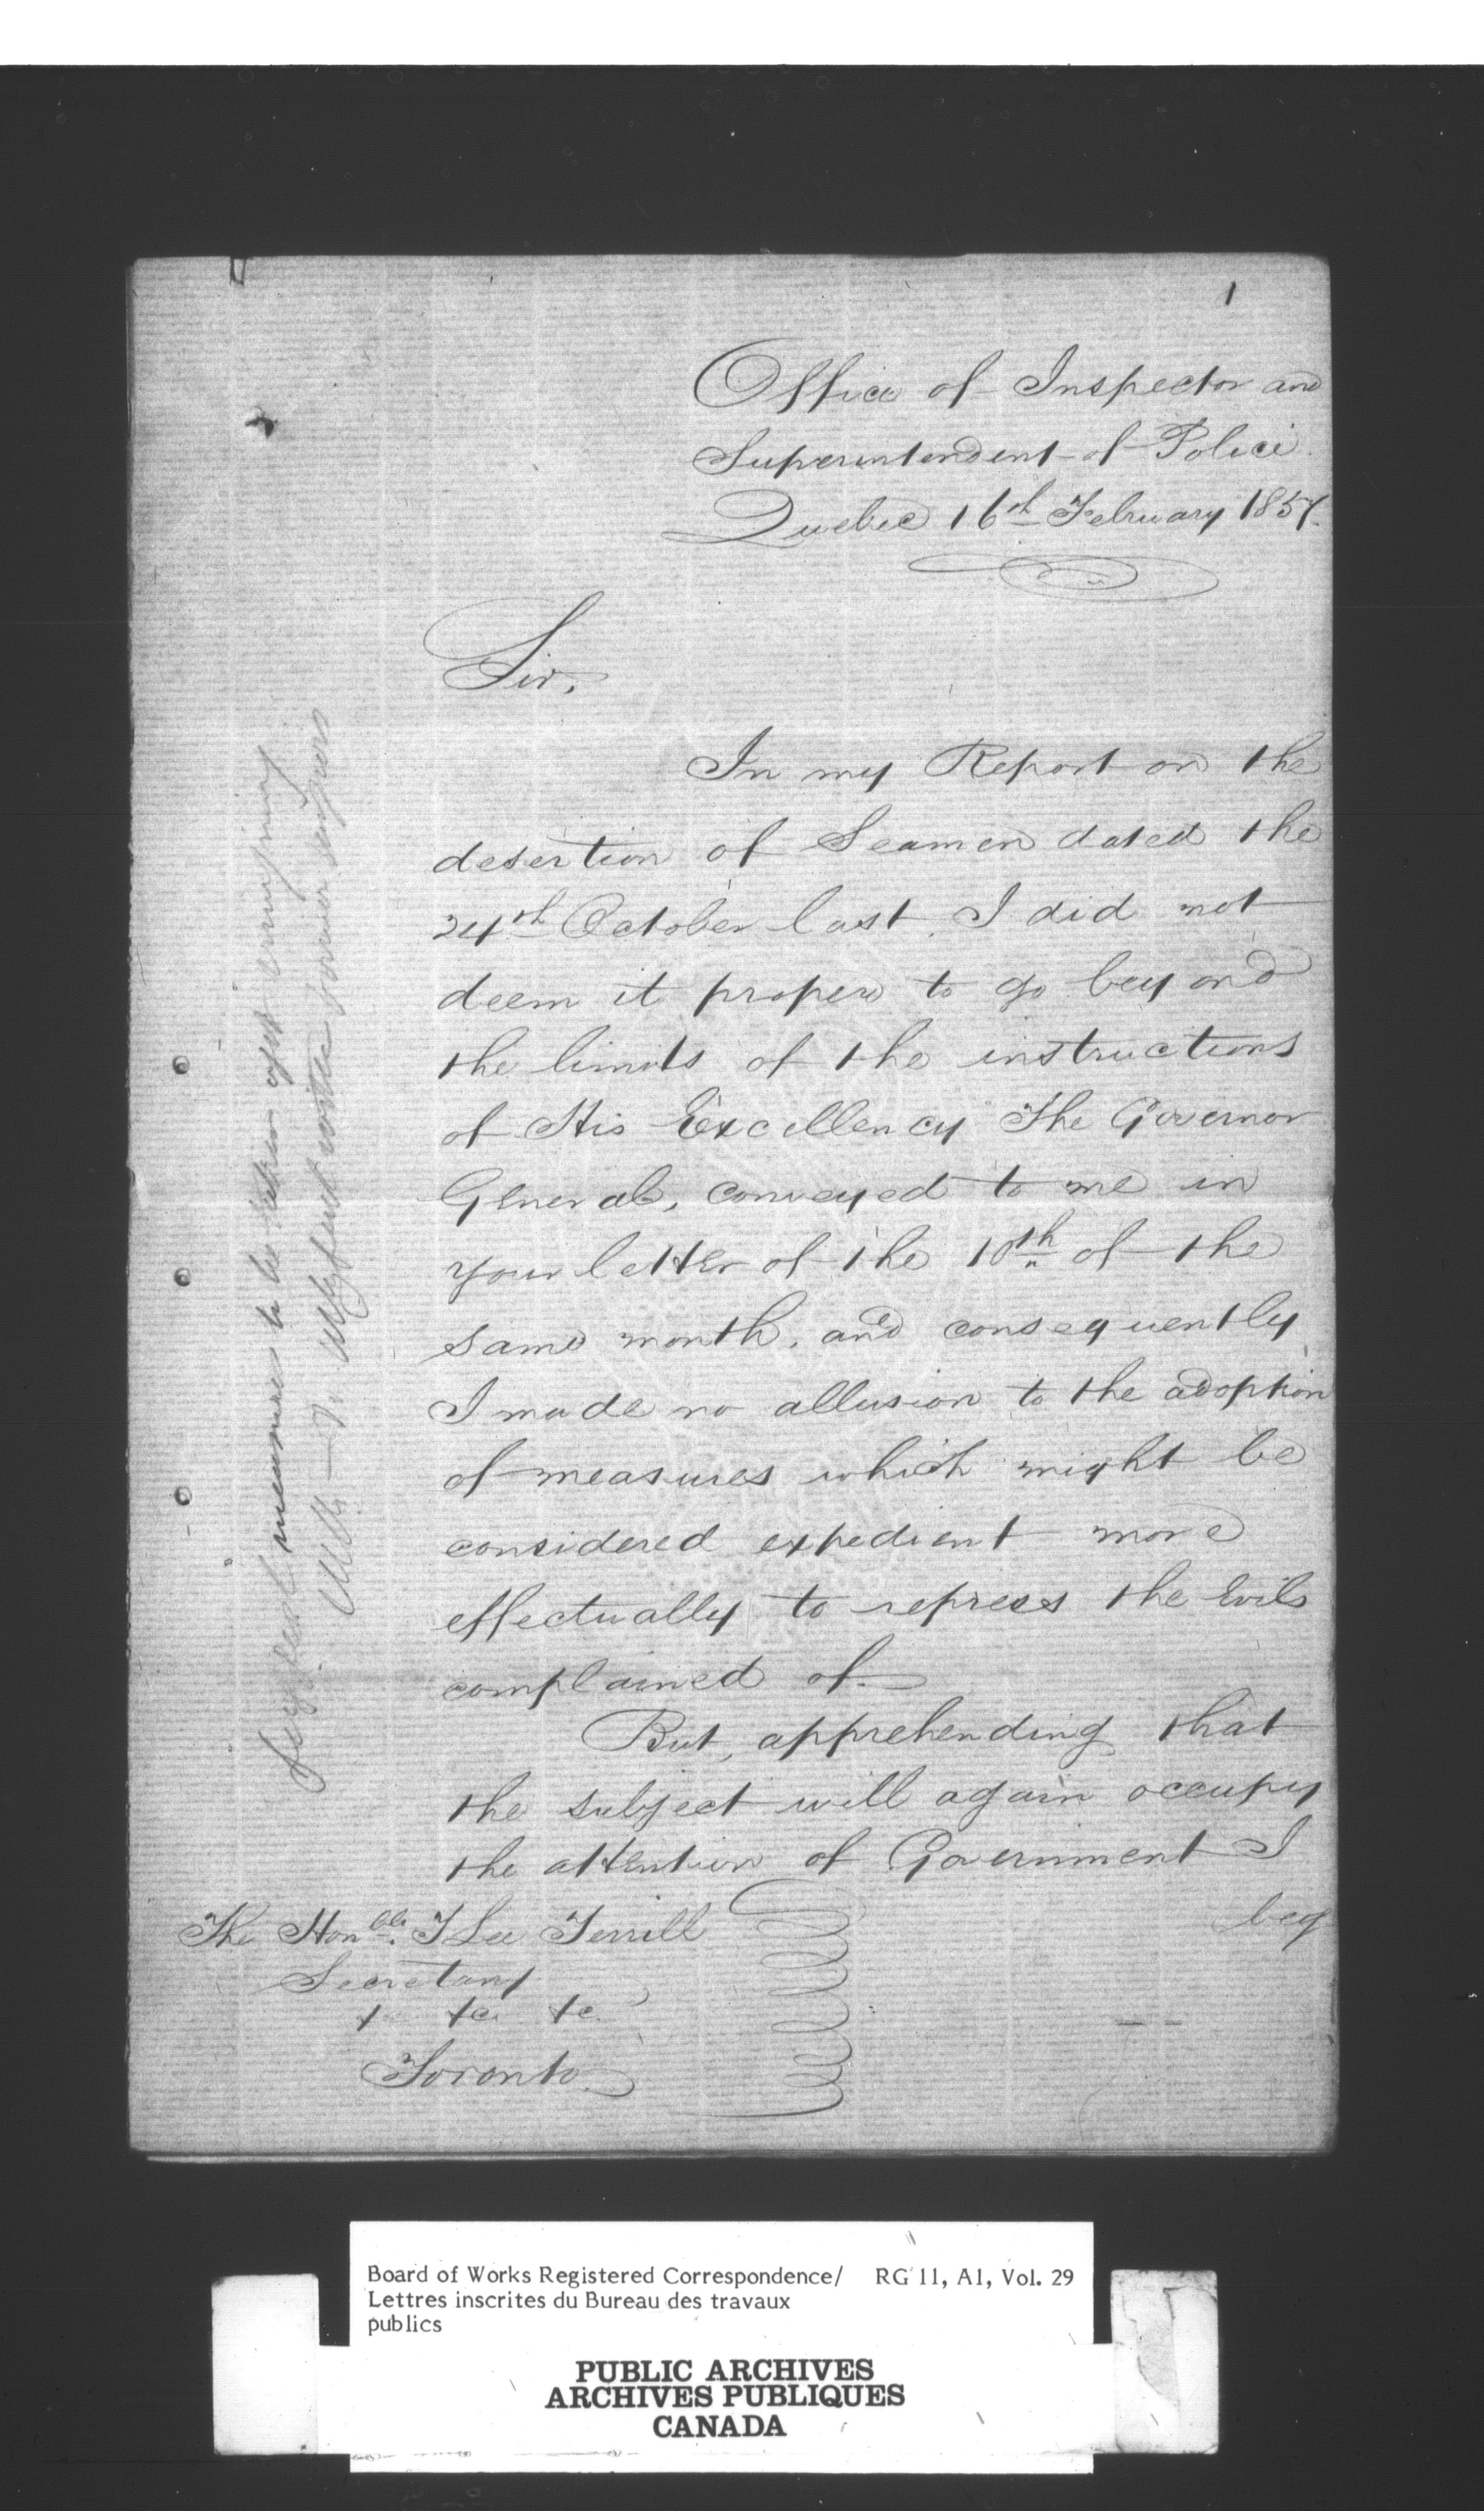 1
Office of Inspector and
Superintendent of Police
Quebec 16th February 1857.
Sir,
In my Report on the
desertion of Seamen dated the
24th October last, I did not
deem it proper to go beyond
the limits of the instructions
of His Excellency The Governor
General, conveyed to me in
your letter of the 10th of the
same month, and consequently
I made no allusion to the adoption
of measures which might be
considered expedient more
effectually to repress the Evils
complained of.
But, apprehending that
the subject will again occupy
the attention of Government I
beg
The Honble. T Lee Terrill
Secretary
&c &c &c
Toronto
measures to be taken agst crimping
former
Board of Works Registered Correspondence/ RG 11, A1, Vol. 29
Lettres inscrites du Bureau des travaux
publics
PUBLIC ARCHIVES
ARCHIVES PUBLIQUES
CANADA